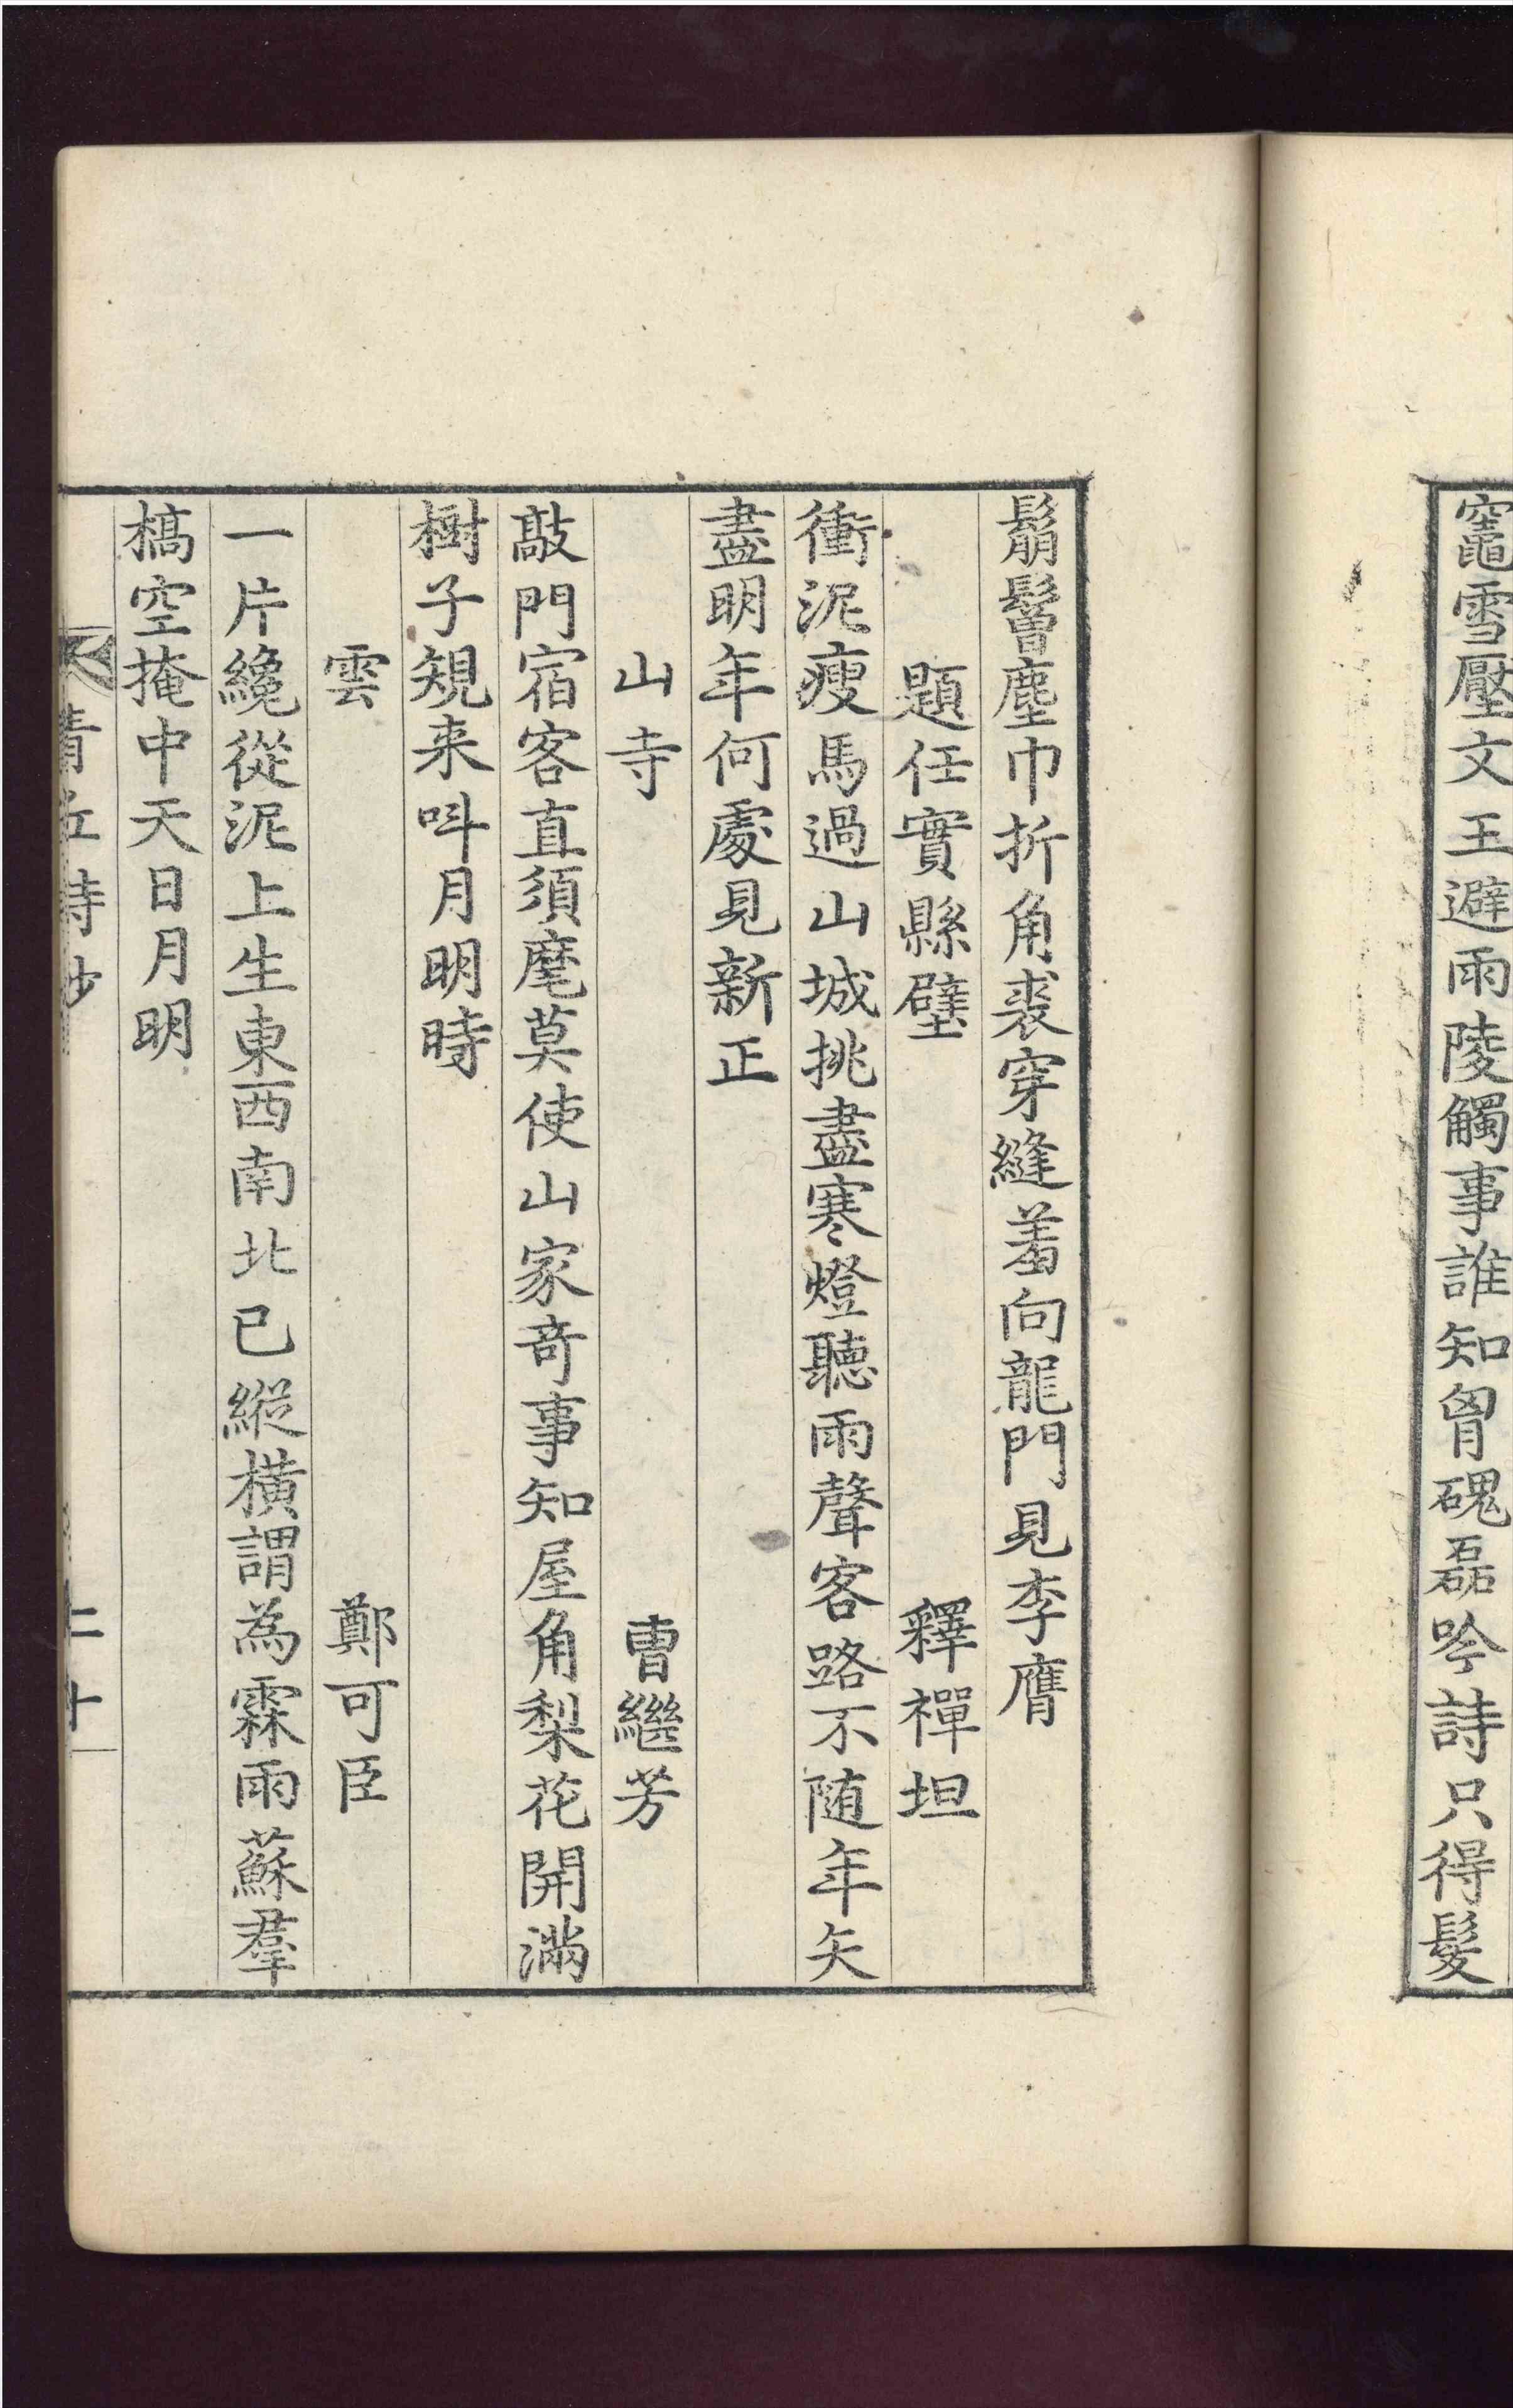 窀雪壓文王避雨陵觸事誰知胷磈磊吟詩只得髮
鬅鬙塵巾折角裘穿縫羞向龍門見李膺
題任實縣壁 釋禪坦
衝泥瘦馬過山城挑盡寒燈聽雨聲客路不随年矢
盡明年何處見新正
山寺 曺繼芳
敲門宿客直須麾莫使山家竒事知屋角梨花開滿
樹子規来呌月明時
雲 鄭可臣
一片纔從泥上生東西南北已縱橫謂為霖雨蘇羣
槁空掩中天日月明
青丘詩抄 二十